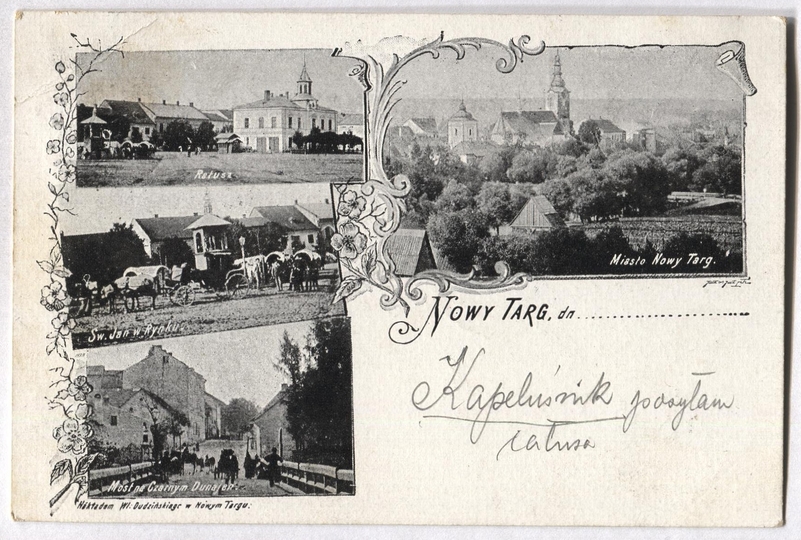 Ratusz
Miasto Nowy Targ.
Św. Jan w Rynku.
NOWY TARG, dn.
Kapeluśnik posyłam
Most na Czarnym Dunajcu.
Nakładem Wł. Dudzińskiego w Nowym Targu.